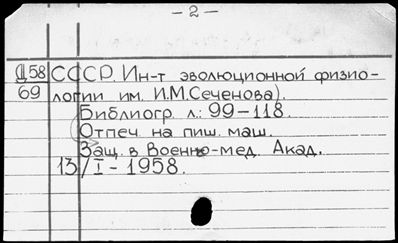 - 2 -
Д 58 СССР. Ин-т эволюционной физио-
69 логии им. И.М.Сеченова).
Библиогр. л.: 99-118.
Отпеч. на пиш. маш.
Защ. в Военно-мед. Акад.
13/I - 1958.